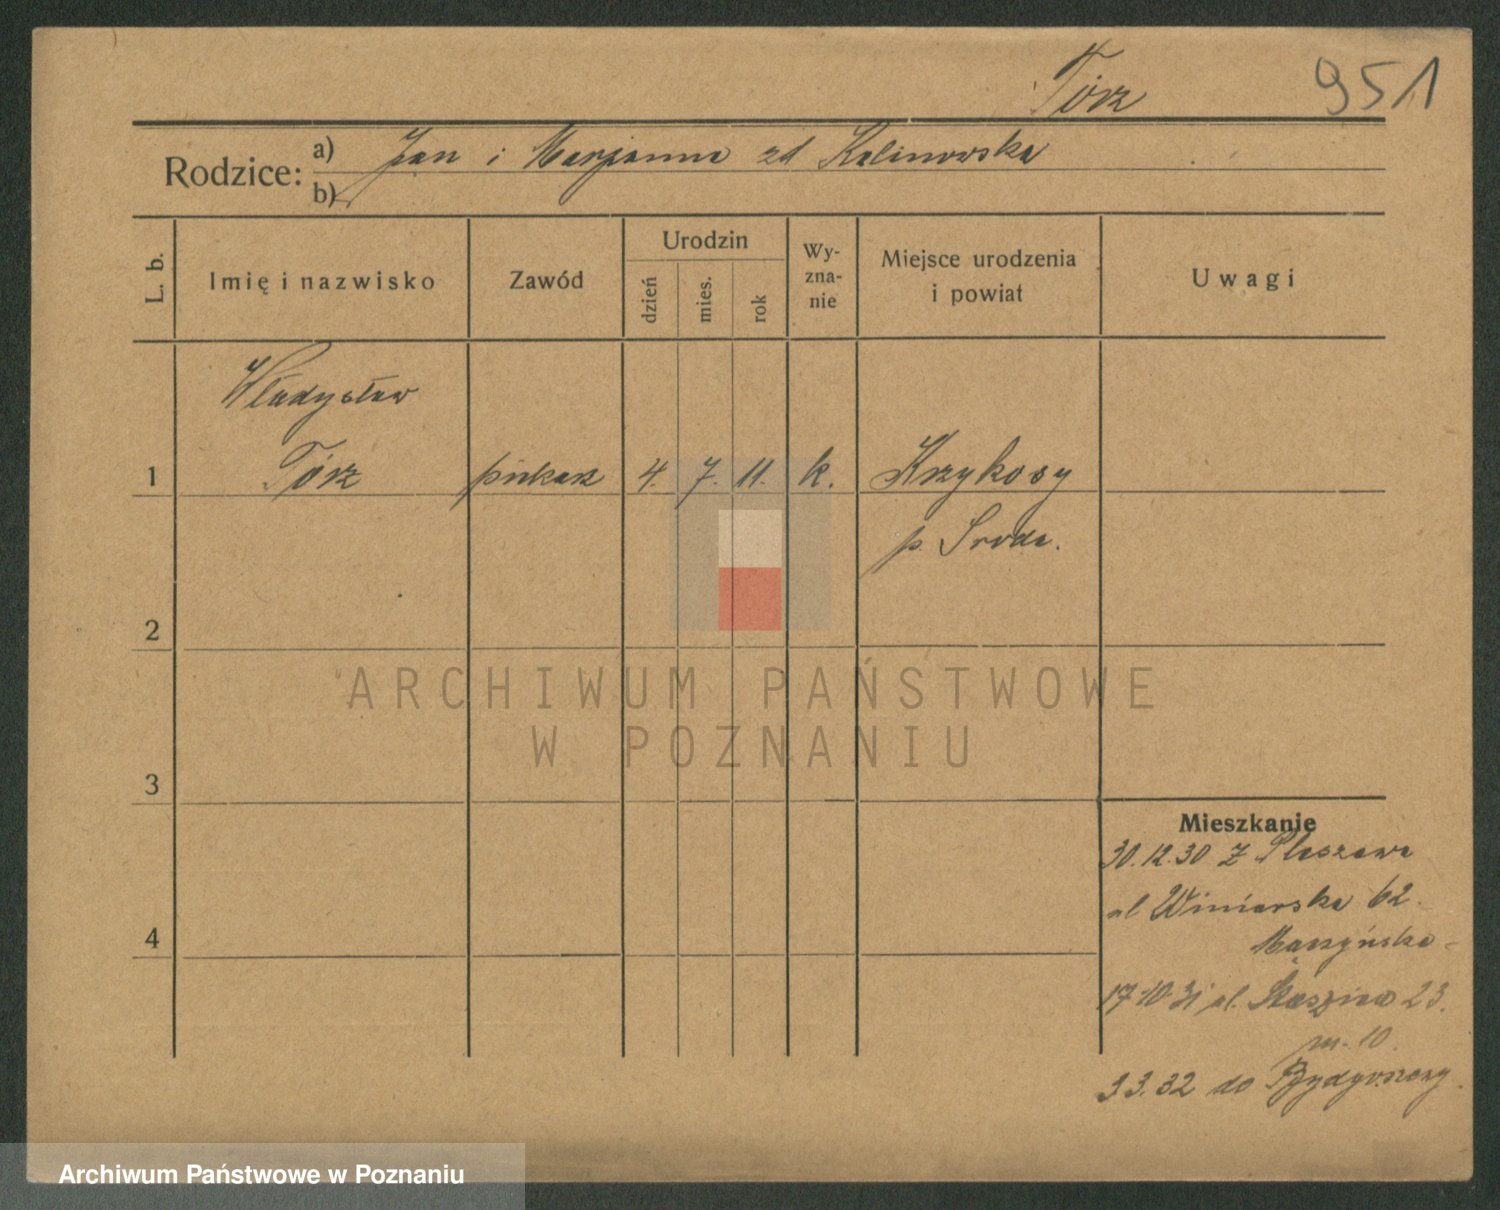 Tórz 951
Rodzice: a) Jan i Marjanna zd Kalinowska
b)
L. b. Imię i nazwisko Zawód Urodzin dzień mies. rok Wy-zna-nie Miejsce urodzenia i powiat Uwagi
Władysław
1 Tórz piekarz 4. 7. 11. k. Krzykosy
p. Sroda.
2
ARCHIWUM PAŃSTWOWE
W POZNANIU
3
Mieszkanie
30.12.30 z Pleszewa
ul Winiarska 62.
4
17.10.31 ul. 23.
m. 10.
3.3.32 do Bydgoszczy.
Archiwum Państwowe w Poznaniu